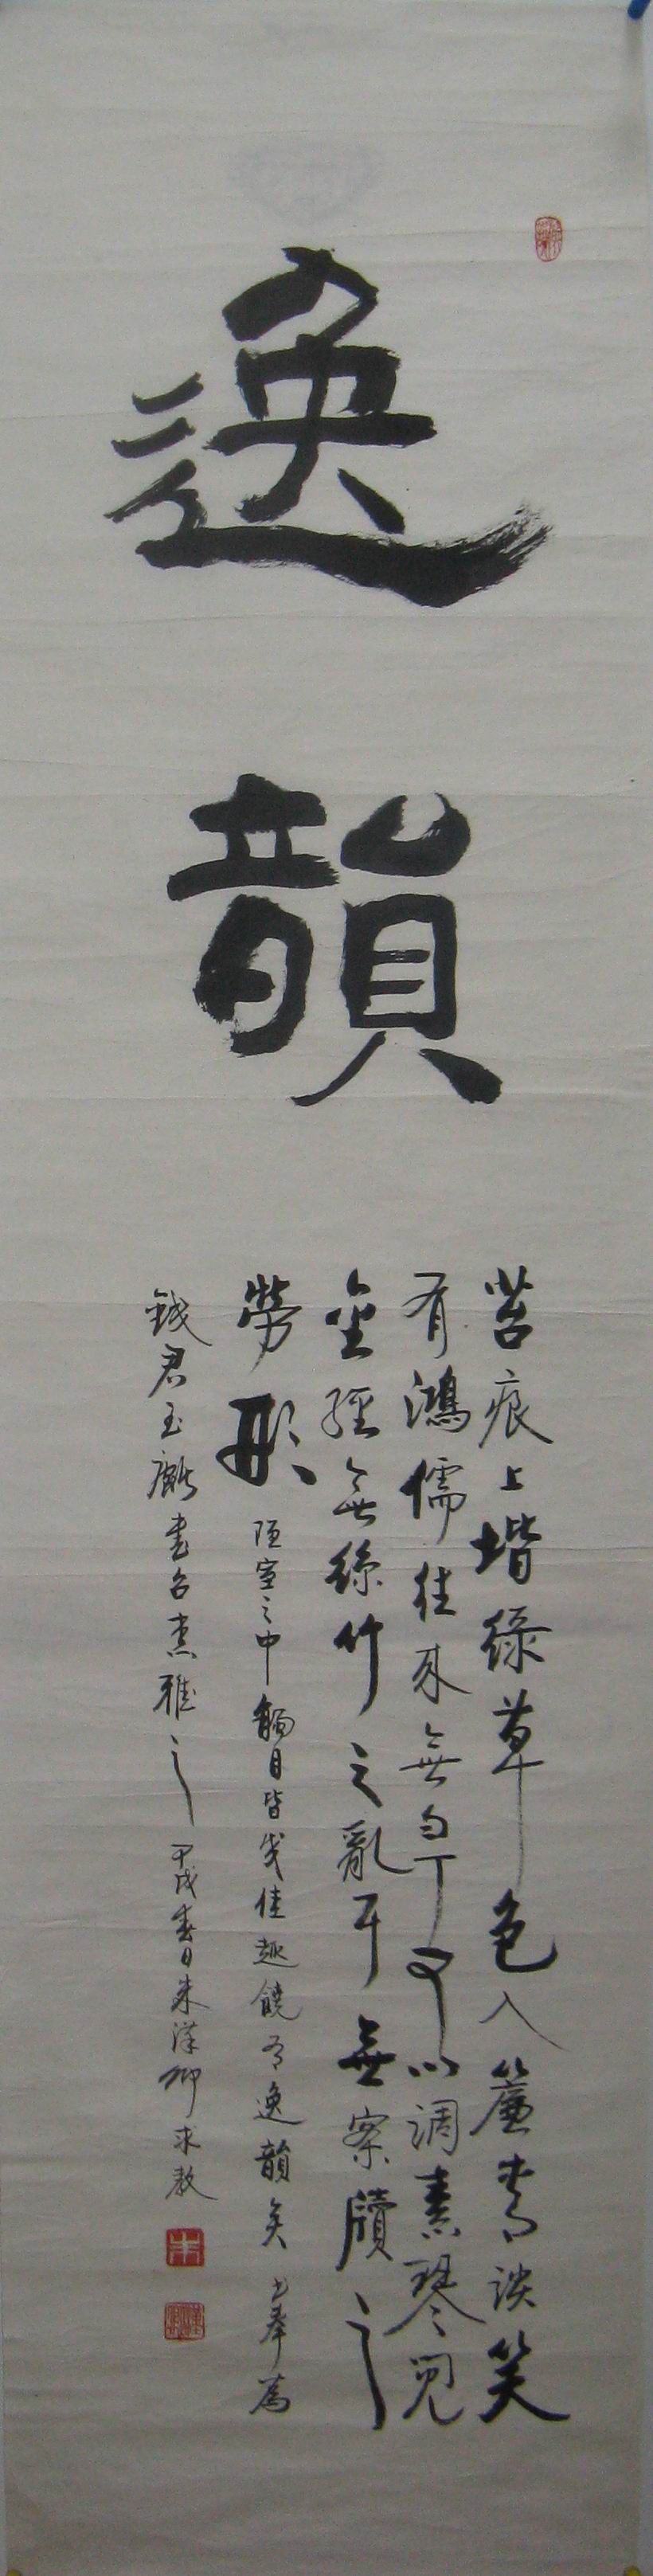 逸韻
苔痕上堦綠草色入簾青談笑
有鴻儒往來無白丁可以調素琴閱
金經無絲竹之亂耳無案牘之
勞形 陋室之中觸目皆成佳趣饒有逸韻矣 書奉爲
錢君玉麟書台惠雅之 甲戌春日朱漢卿求教
朱